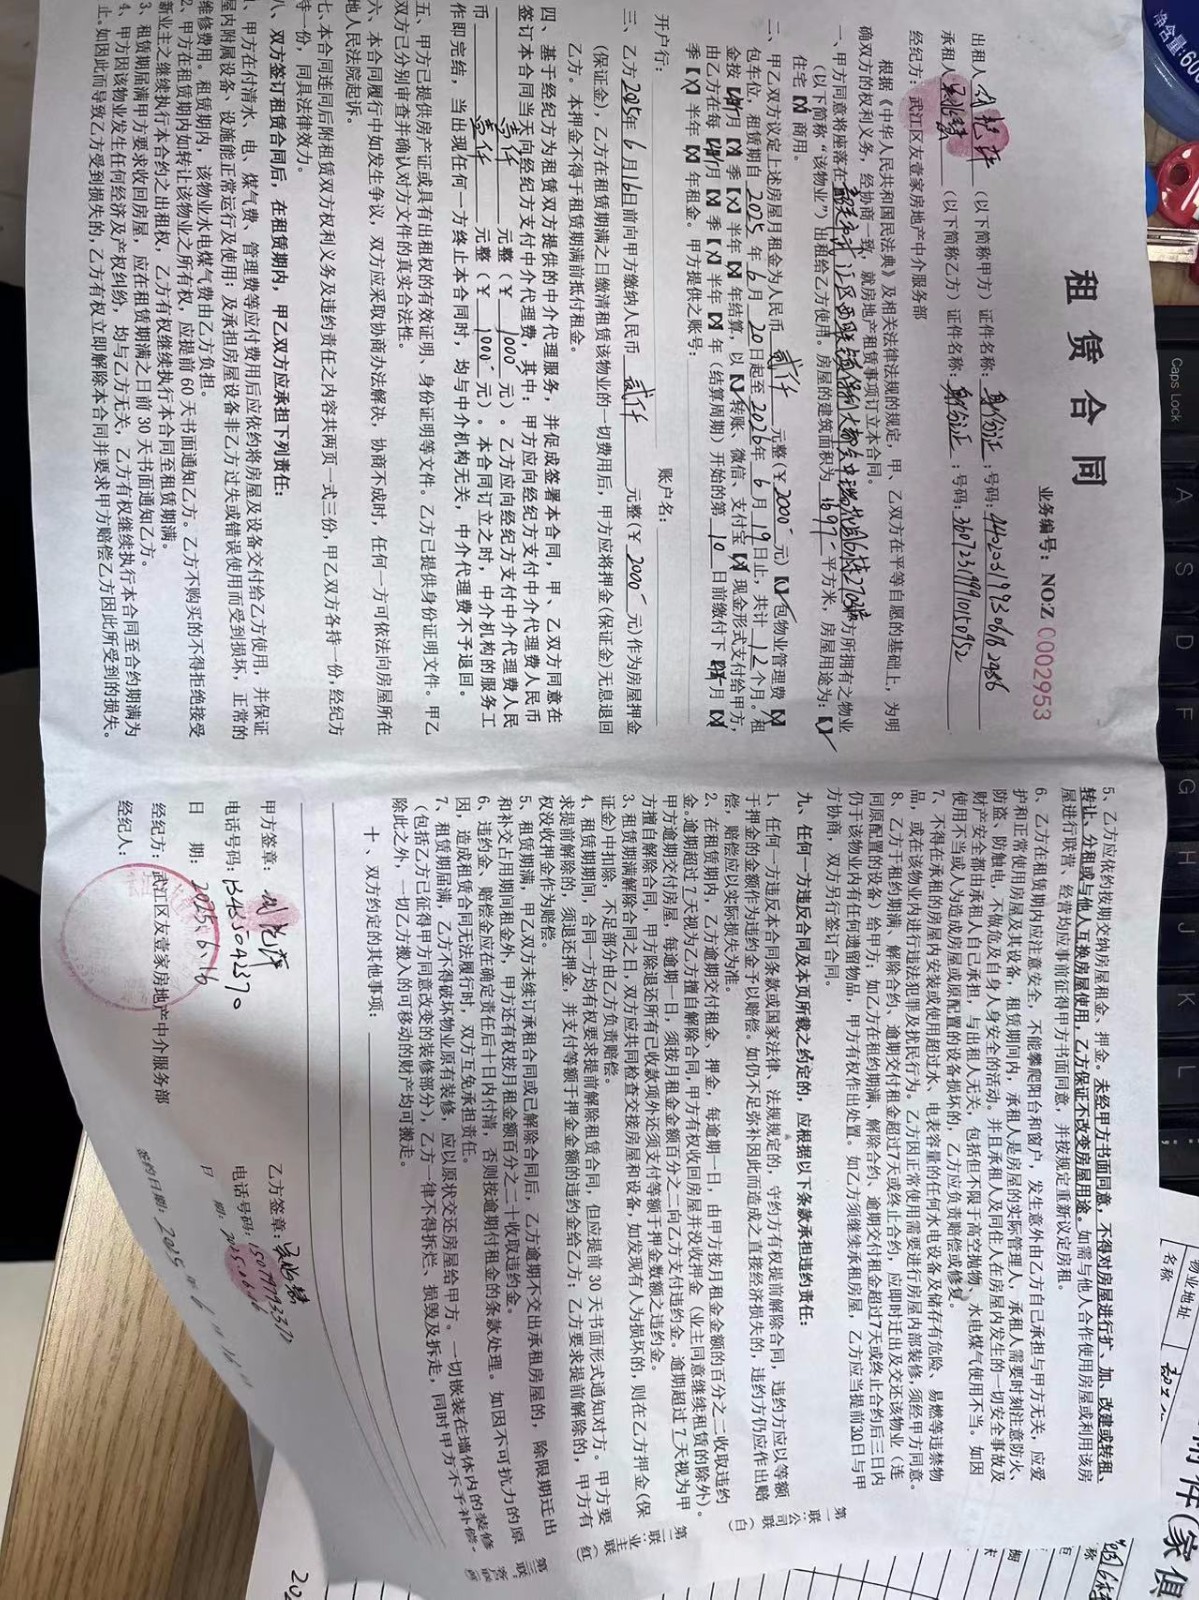 租 赁 合 同
业务编号：NO:Z 0002953
出租人（以下简称甲方）证件名称：身份证；号码：
承租人（以下简称乙方）证件名称：身份证；号码：
经纪方：武江区友壹家房地产中介服务部
根据《中华人民共和国民法典》及相关法律法规的规定，甲、乙双方在平等自愿的基础上，为明
确双方的权利义务，经协商一致，就房地产租赁事项订立本合同。
一、甲方同意将座落在 方所拥有之物业
（以下简称“该物业”）出租给乙方使用。房屋的建筑面积为 平方米，房屋用途为：【√】
住宅【X】商用。
二、甲乙双方议定上述房屋月租金为人民币 贰仟 元整（￥2000-元）【√】包物业管理费【X】
包车位，租赁期自 2025 年 6 月 20 日起至 2026 年 6 月 19 日止，共计 12 个月。租
金按【√】月【X】季【X】半年【X】年结算，以【√】转账、微信、支付宝【X】现金形式支付给甲方，
由乙方在每【√】月【X】季【X】半年【X】年（结算周期）开始的第 10 日前缴付下【√】月【X】
季【X】半年【X】年租金。甲方提供之账号：
开户行： 账户名：
三、乙方 2025 年 6 月 16 日前向甲方缴纳人民币 贰仟 元整（￥2000-元）作为房屋押金
（保证金），乙方在租赁期满之日缴清租赁该物业的一切费用后，甲方应将押金（保证金）无息退回
乙方。本押金不得于租赁期满前抵付租金。
四、基于经纪方为租赁双方提供的中介代理服务，并促成签署本合同，甲、乙双方同意在
签订本合同当天向经纪方支付中介代理费，其中：甲方应向经纪方支付中介代理费人民币
壹仟 元整（￥1000-元）。乙方应向经纪方支付中介代理费人民
币 壹仟 元整（￥1000-元）。本合同订立之时，中介机构的服务工
作即完结，当出现任何一方终止本合同时，均与中介机构无关，中介代理费不予退回。
五、甲方已提供房产证或具有出租权的有效证明、身份证明等文件。乙方已提供身份证明文件。甲乙
双方已分别审查并确认对方文件的真实合法性。
六、本合同履行中如发生争议，双方应采取协商办法解决，协商不成时，任何一方可依法向房屋所在
地人民法院起诉。
七、本合同连同后附租赁双方权利义务及违约责任之内容共两页一式三份，甲乙双方各持一份，经纪方
等一份，同具法律效力。
八、双方签订租赁合同后，在租赁期内，甲乙双方应承担下列责任：
1、甲方在付清水、电、煤气费、管理费等应付费用后应依约将房屋及设备交付给乙方使用，并保证
屋内附属设备、设施能正常运行及使用；及承担房屋设备非乙方过失或错误使用而受到损坏，正常的
维修费用。租赁期内，该物业水电煤气费由乙方负担。
2、甲方在租赁期内如转让该物业之所有权，应提前 60 天书面通知乙方。乙方不购买的不得拒绝接受
新业主之继续执行本合约之出租权，乙方有权继续执行本合同至租赁期满。
3、租赁期届满甲方要求收回房屋，应在租赁期满之日前 30 天书面通知乙方。
4、甲方因该物业发生任何经济及产权纠纷，均与乙方无关，乙方有权继续执行本合同至合约期满为
止。如因此而导致乙方受到损失的，乙方有权立即解除本合同并要求甲方赔偿乙方因此所受到的损失。
5、乙方应依约按期交纳房屋租金、押金。未经甲方书面同意，不得对房屋进行扩、加、改建或转租、
转让、分租或与他人互换房屋使用，乙方保证不改变房屋用途。如需与他人合作使用房屋或利用该房
屋进行联营、经营均应事前征得甲方书面同意，并按规定重新议定房租。
6、乙方在租赁期内应注意安全，不能攀爬阳台和窗户，发生意外由乙方自己承担与甲方无关，应爱
护和正常使用房屋及其设备，租赁期间内，承租人是房屋的实际管理人，承租人需要时刻注意防火、
防盗、防触电，不做危及自身人身安全的活动。并且承租人及同住人在房屋内发生的一切安全事故及
财产安全都由承租人自己承担，与出租人无关，包括但不限于高空抛物、水电煤气使用不当。如因
使用不当或人为造成房屋或原配置的设备损坏的，乙方应负责赔偿或修复。
7、不得在承租的房屋内安装或使用超过水、电表容量的任何水电设备及储存有危险、易燃等违禁物
品，或在该物业内进行违法犯罪及扰民行为。乙方因正常使用需要进行房屋内部装修，须经甲方同意。
8、乙方于租约期满、解除合约、逾期交付租金超过7天或终止合约，应即时迁出及交还该物业（连
同原配置的设备）给甲方；如乙方在租约期满、解除合约、逾期交付租金超过7天或终止合约后三日内
仍于该物业内有任何遗留物品，甲方有权作出处置。如乙方须继续承租房屋，乙方应当提前30日与甲
方协商，双方另行签订合同。
九、任何一方违反合同及本项所载之约定的，应根据以下条款承担违约责任：
1、任何一方违反本合同条款或国家法律、法规规定的，守约方有权提前解除合同，违约方应以等额
于押金的金额作为违约金予以赔偿。如仍不足弥补因此而造成之直接经济损失的，违约方仍应作出赔
偿，赔偿应以实际损失为准。
2、在租赁期内，乙方逾期交付租金、押金，每逾期一日，由甲方按月租金金额的百分之二收取违约
金。逾期超过 7 天视为乙方擅自解除合同，甲方有权收回房屋并没收押金（业主同意继续租赁的除外）。
甲方逾期交付房屋，每逾期一日，须按月租金金额百分之二向乙方支付违约金。逾期超过 7 天视为甲
方擅自解除合同，甲方除退还所有已收款项外还须支付等额于押金数额之违约金。
3、租赁期满解除合同之日，双方应共同检查交接房屋和设备，如发现有人为损坏的，则在乙方押金（保
证金）中扣除，不足部分由乙方负责赔偿。
4、租赁期期间，合同一方均有权要求提前解除租赁合同，但应提前 30 天书面形式通知对方。甲方要
求提前解除的，须退还押金，并支付等额于押金金额的违约金给乙方；乙方要求提前解除的，甲方有
权没收押金作为赔偿。
5、租赁期满，甲乙双方未续订承租合同或已解除合同后，乙方逾期不交出承租房屋的，除限期迁出
和补交占用期间租金外，甲方还有权按月租金额百分之二十收取违约金。
6、违约金、赔偿金应在确定责任后十日内付清，否则按逾期付租金的条款处理。如因不可抗力的原
因，造成租赁合同无法履行时，双方互免承担责任。
7、租赁期届满，乙方不得破坏物业原有装修，应以原状交还房屋给甲方。一切嵌装在墙体内的装修
（包括乙方已征得甲方同意改变的装修部分），乙方一律不得拆烂、损毁及拆走，同时甲方不予补偿。
除此之外，一切乙方搬入的可移动的财产均可搬走。
十、双方约定的其他事项：
甲方签章： 乙方签章：
电话号码： 电话号码：
日 期：2025.6.16 日 期：
经纪方：武江区友壹家房地产中介服务部
经纪人： 签约日期：2025 年 6 月 16
第一联 公司（白）
第二联 业主（红）
第三联
物业地址
名称
附件(家俱
Caps Lock
A
S
D
F
G
H
J
K
L
净含量:60